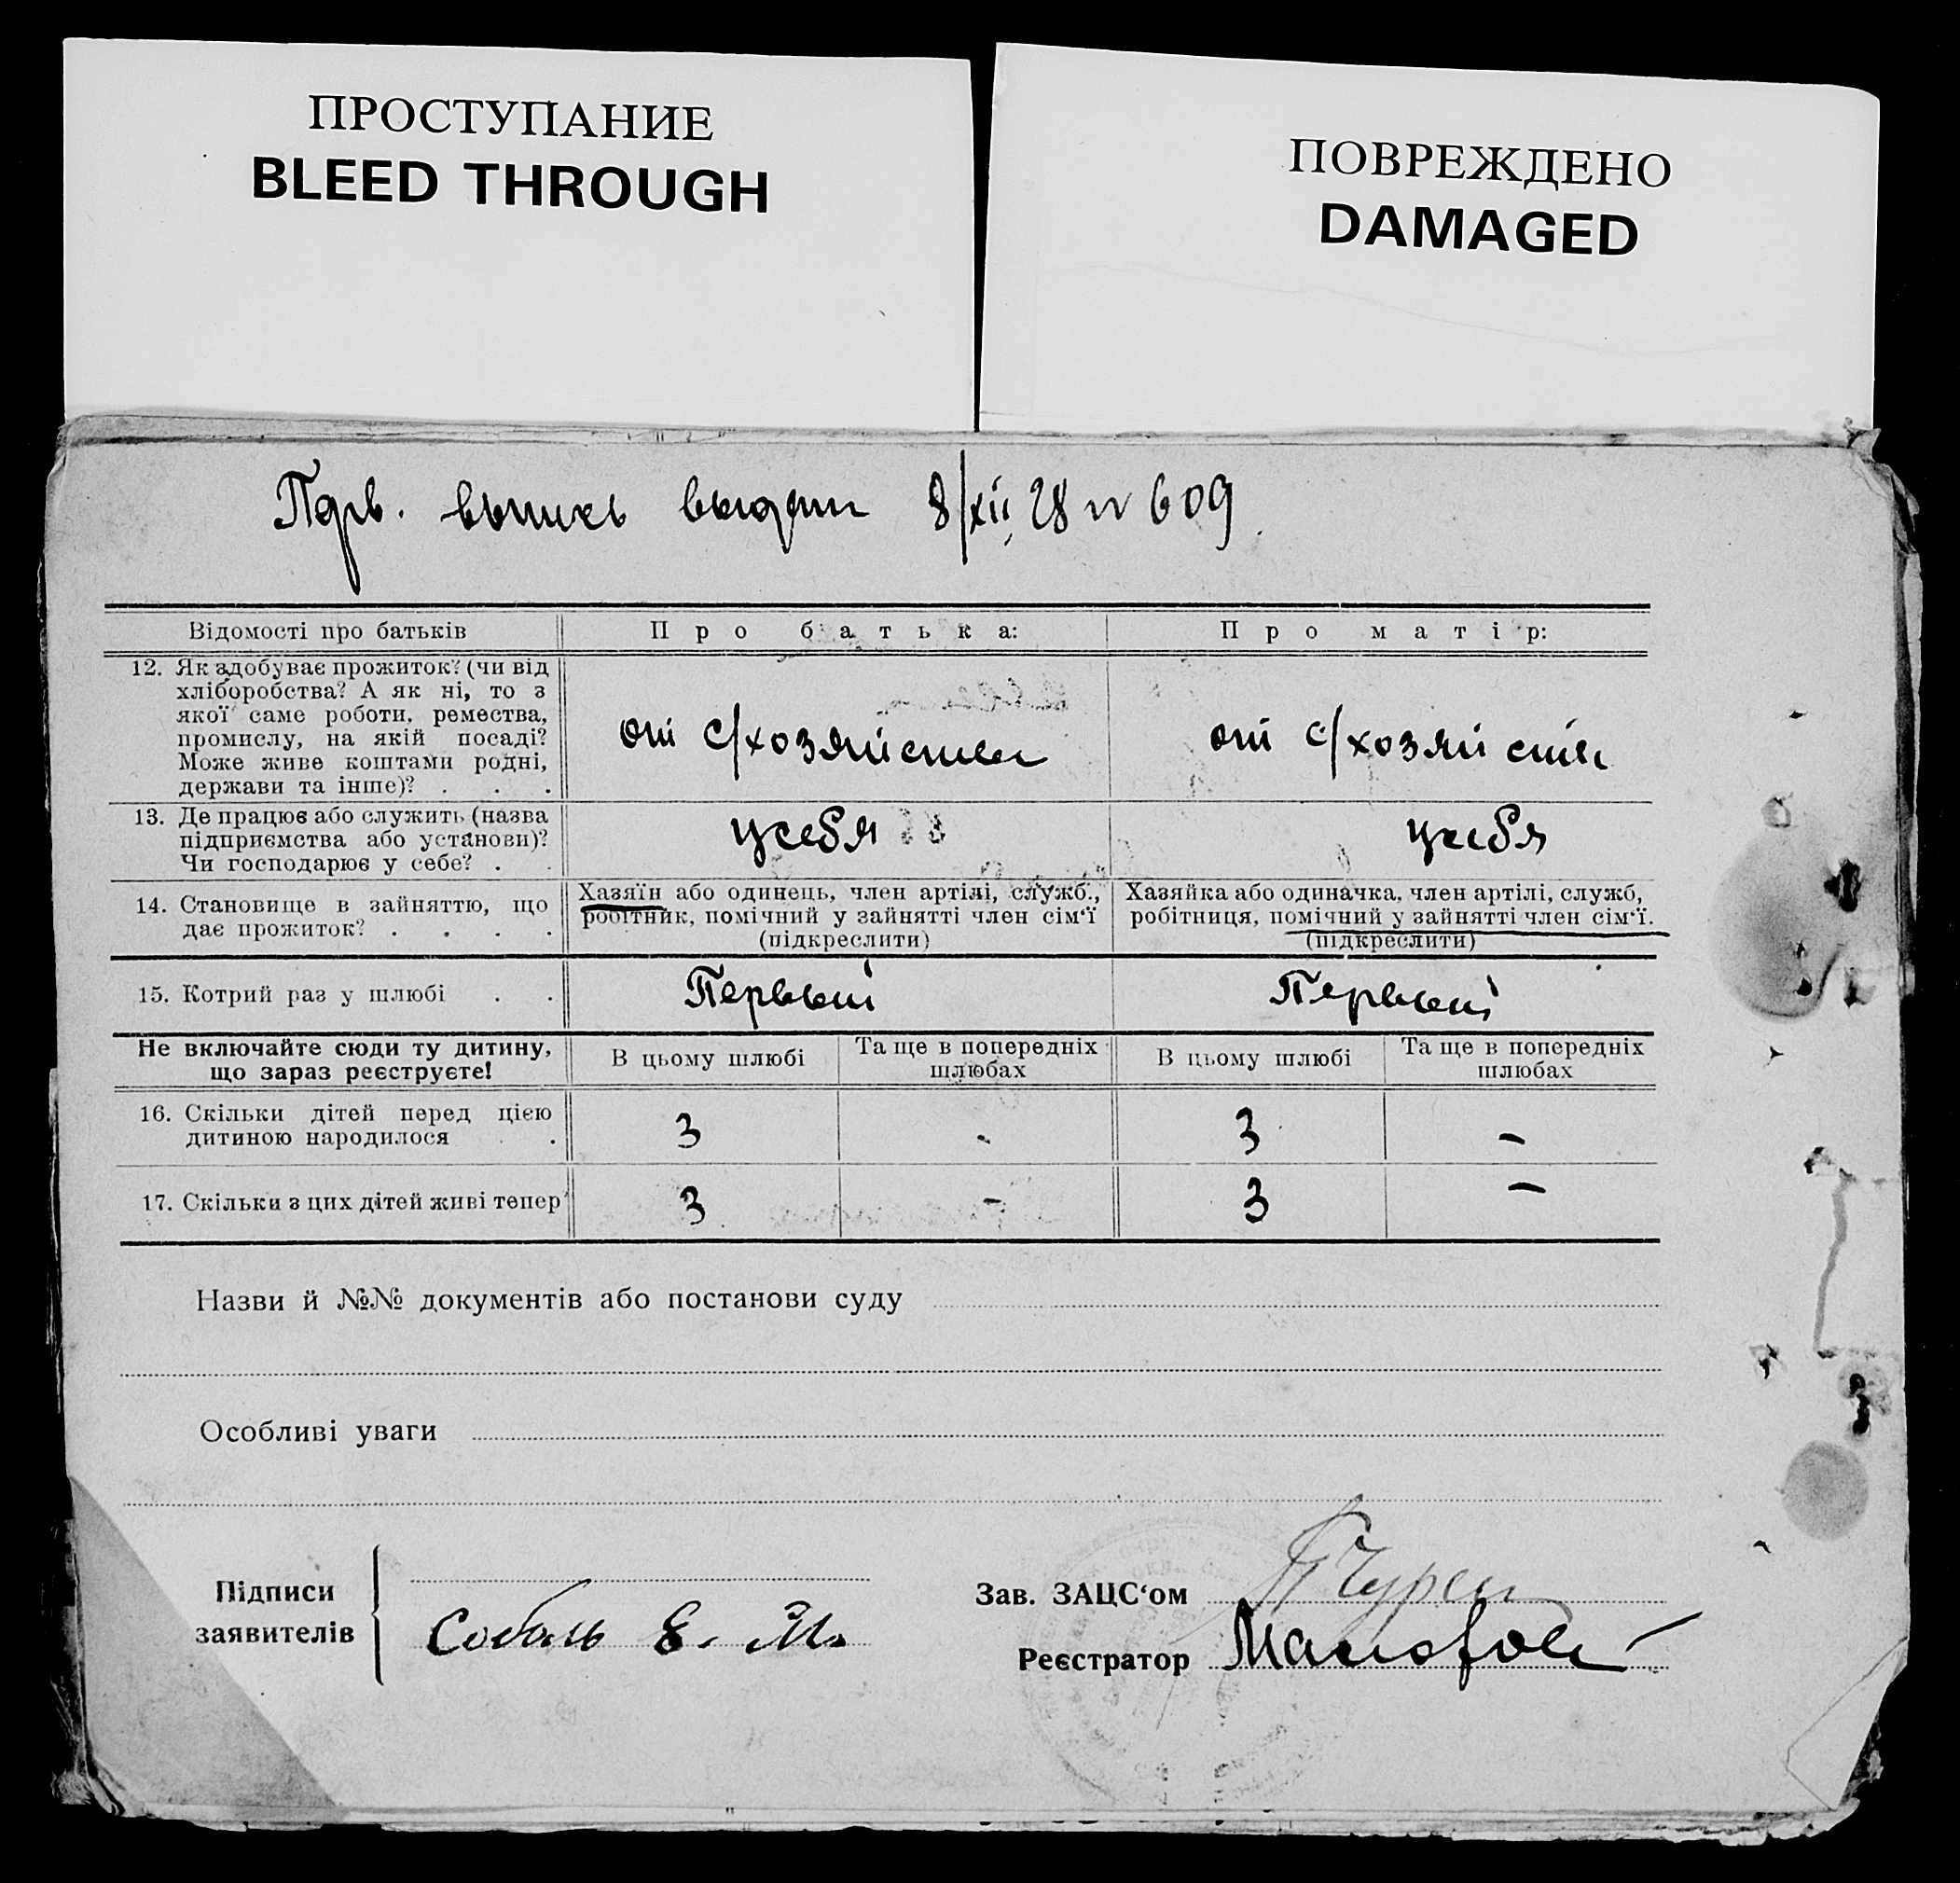 ПРОСТУПАНИЕ
BLEED THROUGH
ПОВРЕЖДЕНО
DAMAGED
выпись выдан 8/XII 28 N 609
Відомості про батьків
Про батька:
Про матір:
12. Як здобуває прожиток? (чи від
хліборобства? А як ні, то з
якої саме роботи, ремества,
промислу, на якій посаді?
Може живе коштами родні,
держави та інше)? . . .
от с/хозяйства
от с/хозяйства
13. Де працює або служить (назва
підприємства або установи)?
Чи господарює у себе? . .
у себя
у себя
14. Становище в зайняттю, що
дає прожиток? . . . .
Хазяїн або одинець, член артілі, служб.,
робітник, помічний у зайнятті член сім'ї
(підкреслити)
Хазяйка або одиначка, член артілі, служб,
робітниця, помічний у зайнятті член сім'ї.
(підкреслити)
15. Котрий раз у шлюбі . .
Первый
Первый
Не включайте сюди ту дитину,
що зараз реєструєте!
В цьому шлюбі
Та ще в попередніх
шлюбах
В цьому шлюбі
Та ще в попередніх
шлюбах
16. Скільки дітей перед цією
дитиною народилося .
3
-
3
-
17. Скільки з цих дітей живі тепер
3
-
3
-
Назви й №№ документів або постанови суду
Особливі уваги
Підписи
заявителів
Соболь Е. М.
Зав. ЗАЦС'ом
Реєстратор